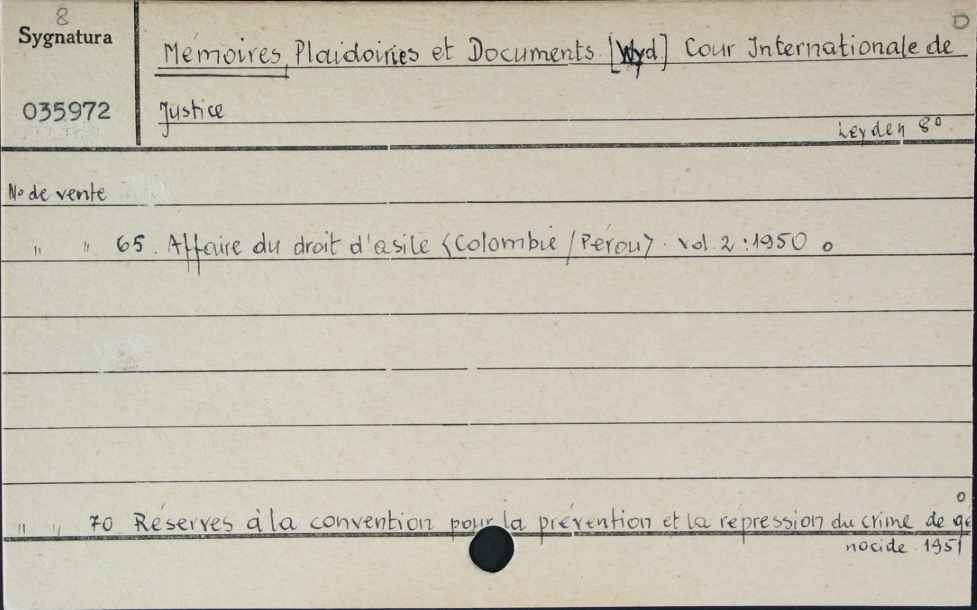 8
D
Sygnatura
Mémoires, Plaidoiries et Documents. [Wyd] Cour Internationale de
035972
Justice
Leyden 8°
No de vente
" " 65. Affaire du droit d'asile <Colombie / Pérou>. vol. 2 : 1950 o
o
" " 70 Réserves à la convention pour la prévention et la répression du crime de gé
nocide 1951